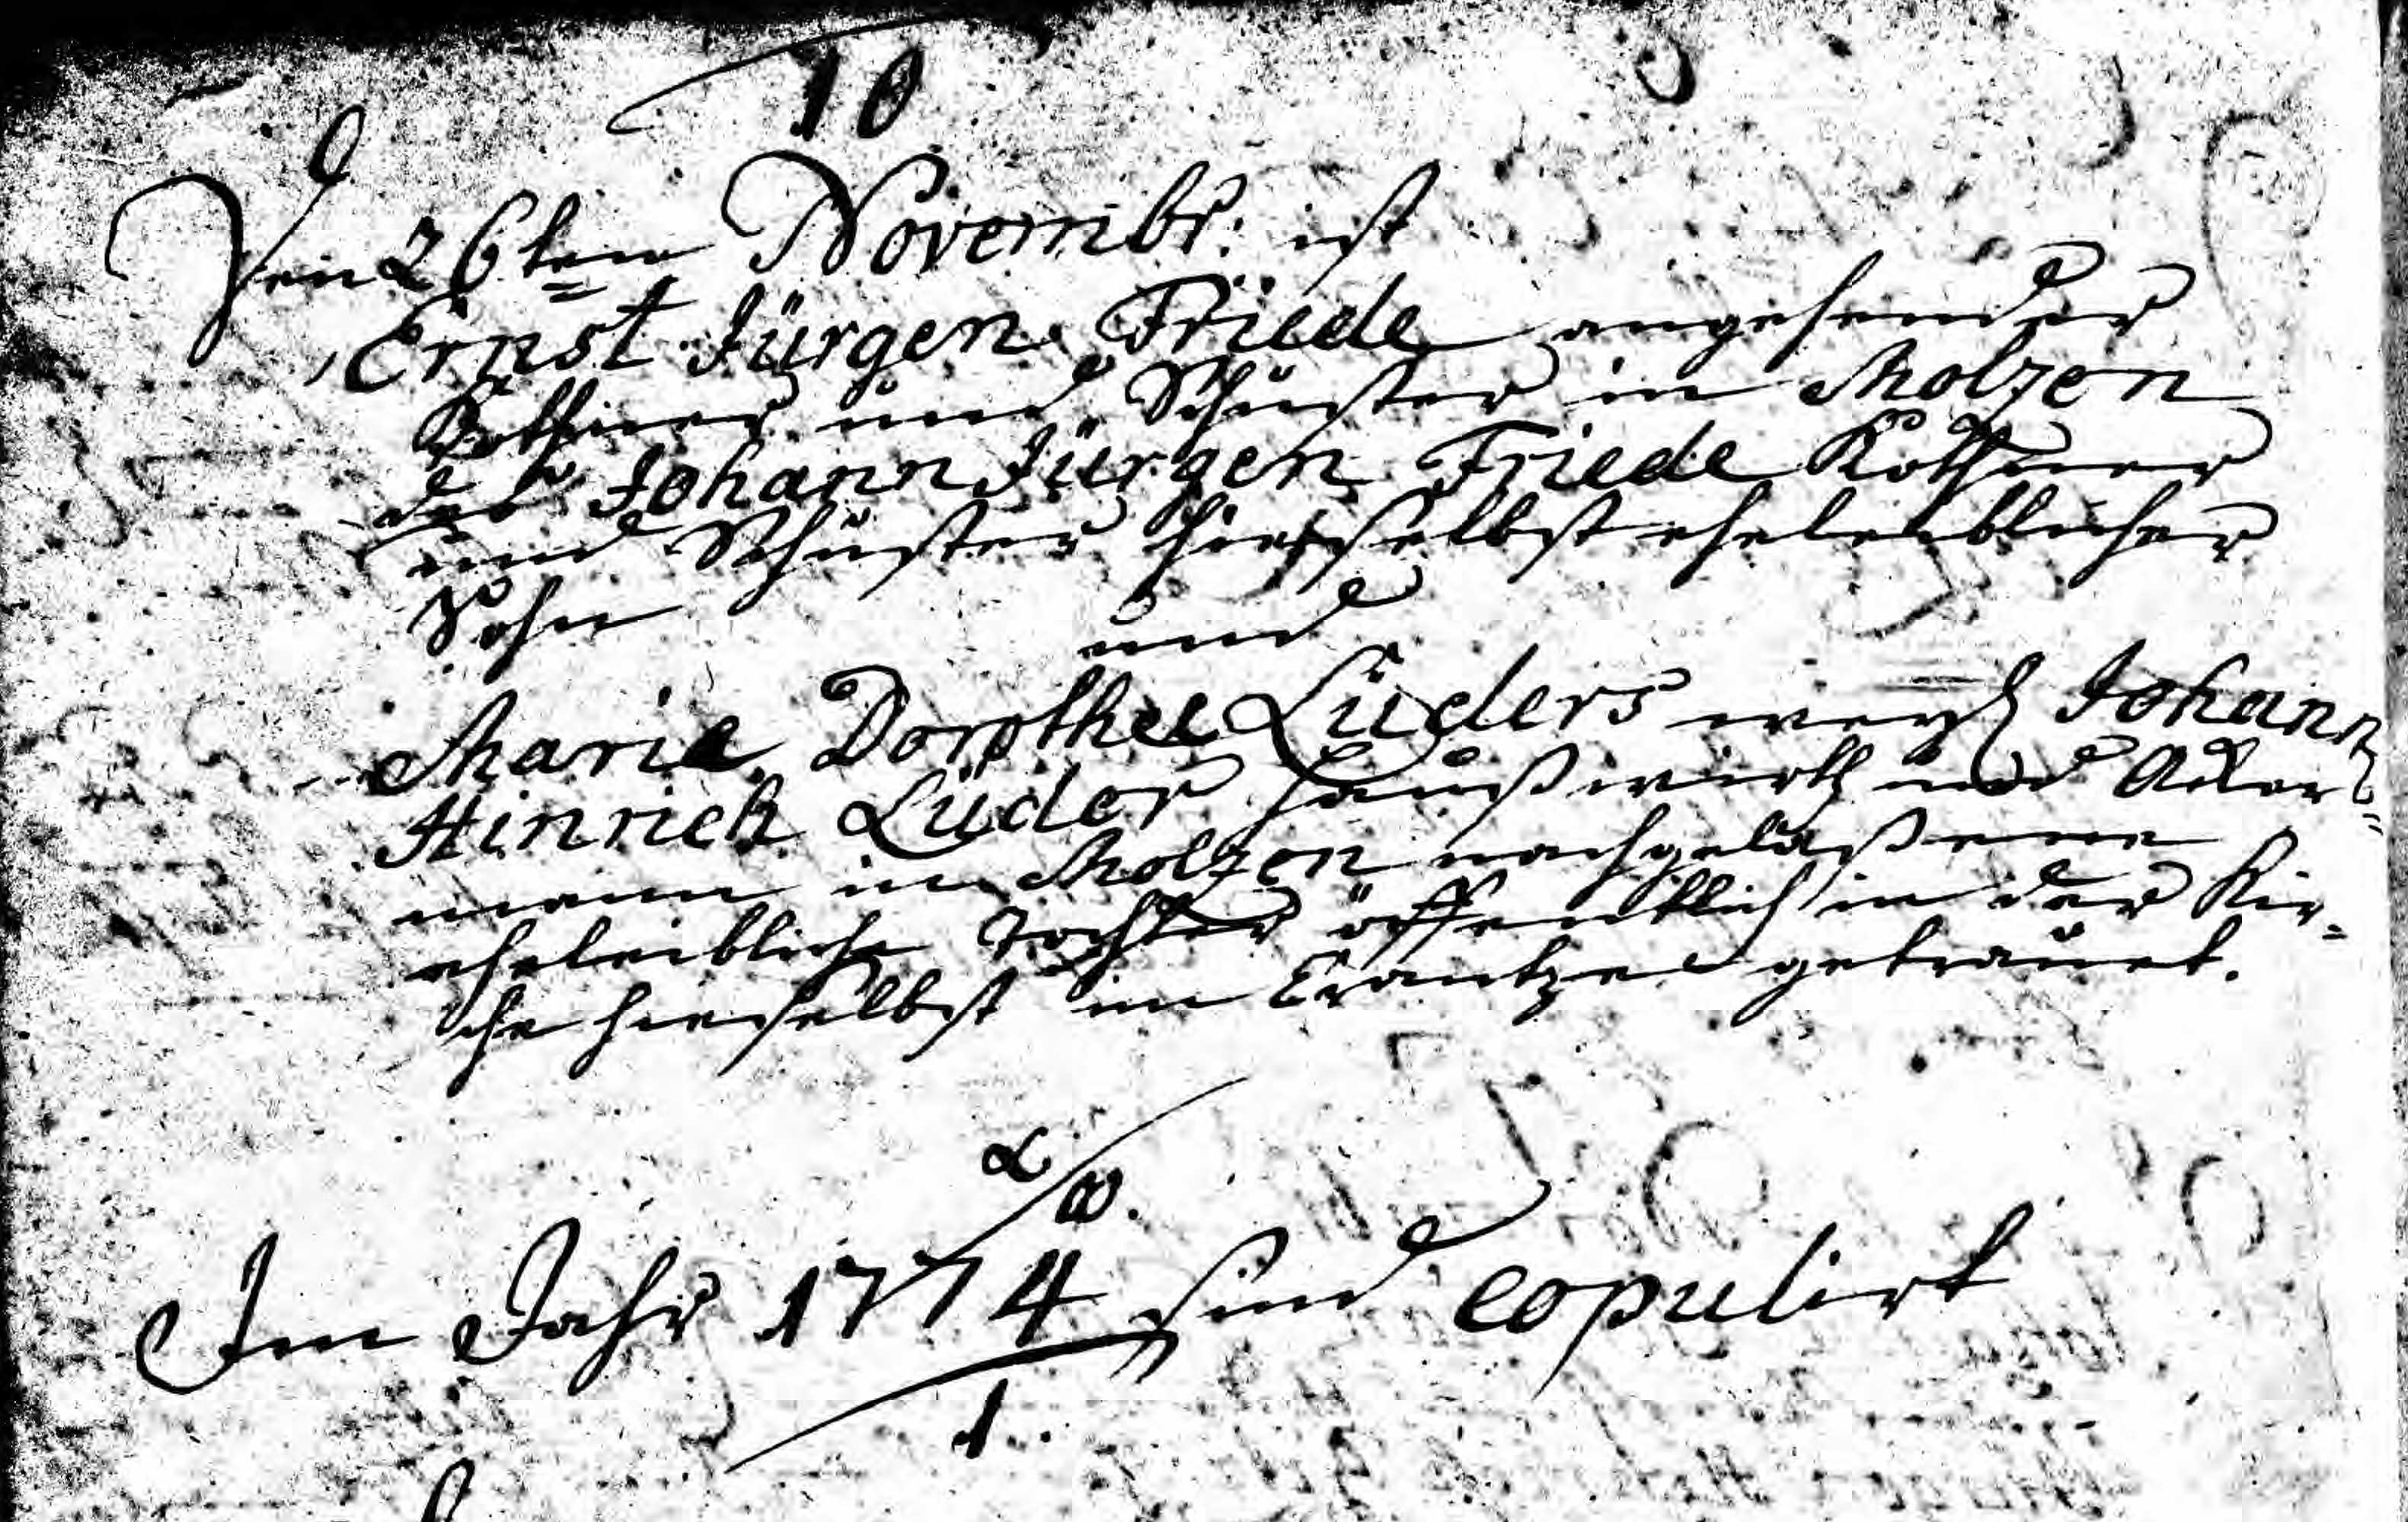 10
Den 26ten Novembr: ist
Ernst Jürgen Friede angehender
Kothner und Schuster in Molzen
des Johann Jürgen Friede Kothner
und Schuster hieselbst eheleiblicher
Sohn
und
Marie Dorothee Lüders weyl Johann
Hinrich Lüder Haußwirth und Acker=
mann in Molzen nachgelaßene
eheleibliche Tochter öffentlich in der Kir=
che hieselbst im Crantze getrauet.
α/ω.
Im Jahr 1774 sind copulirt
1.